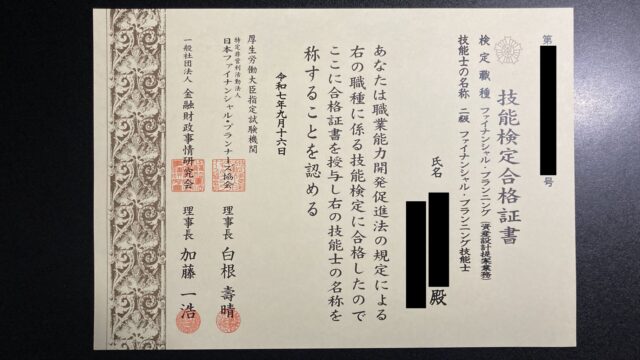 第 号
技能検定合格証書
検定職種 ファイナンシャル・プランニング(資産設計提案業務)
技能士の名称 二級 ファイナンシャル・プランニング技能士
氏名 殿
あなたは職業能力開発促進法の規定による
右の職種に係る技能検定に合格したので
ここに合格証書を授与し右の技能士の名称を
称することを認める
令和七年九月十六日
厚生労働大臣指定試験機関
特定非営利活動法人
日本ファイナンシャル・プランナーズ協会 理事長 白根壽晴
一般社団法人 金融財政事情研究会 理事長 加藤一浩